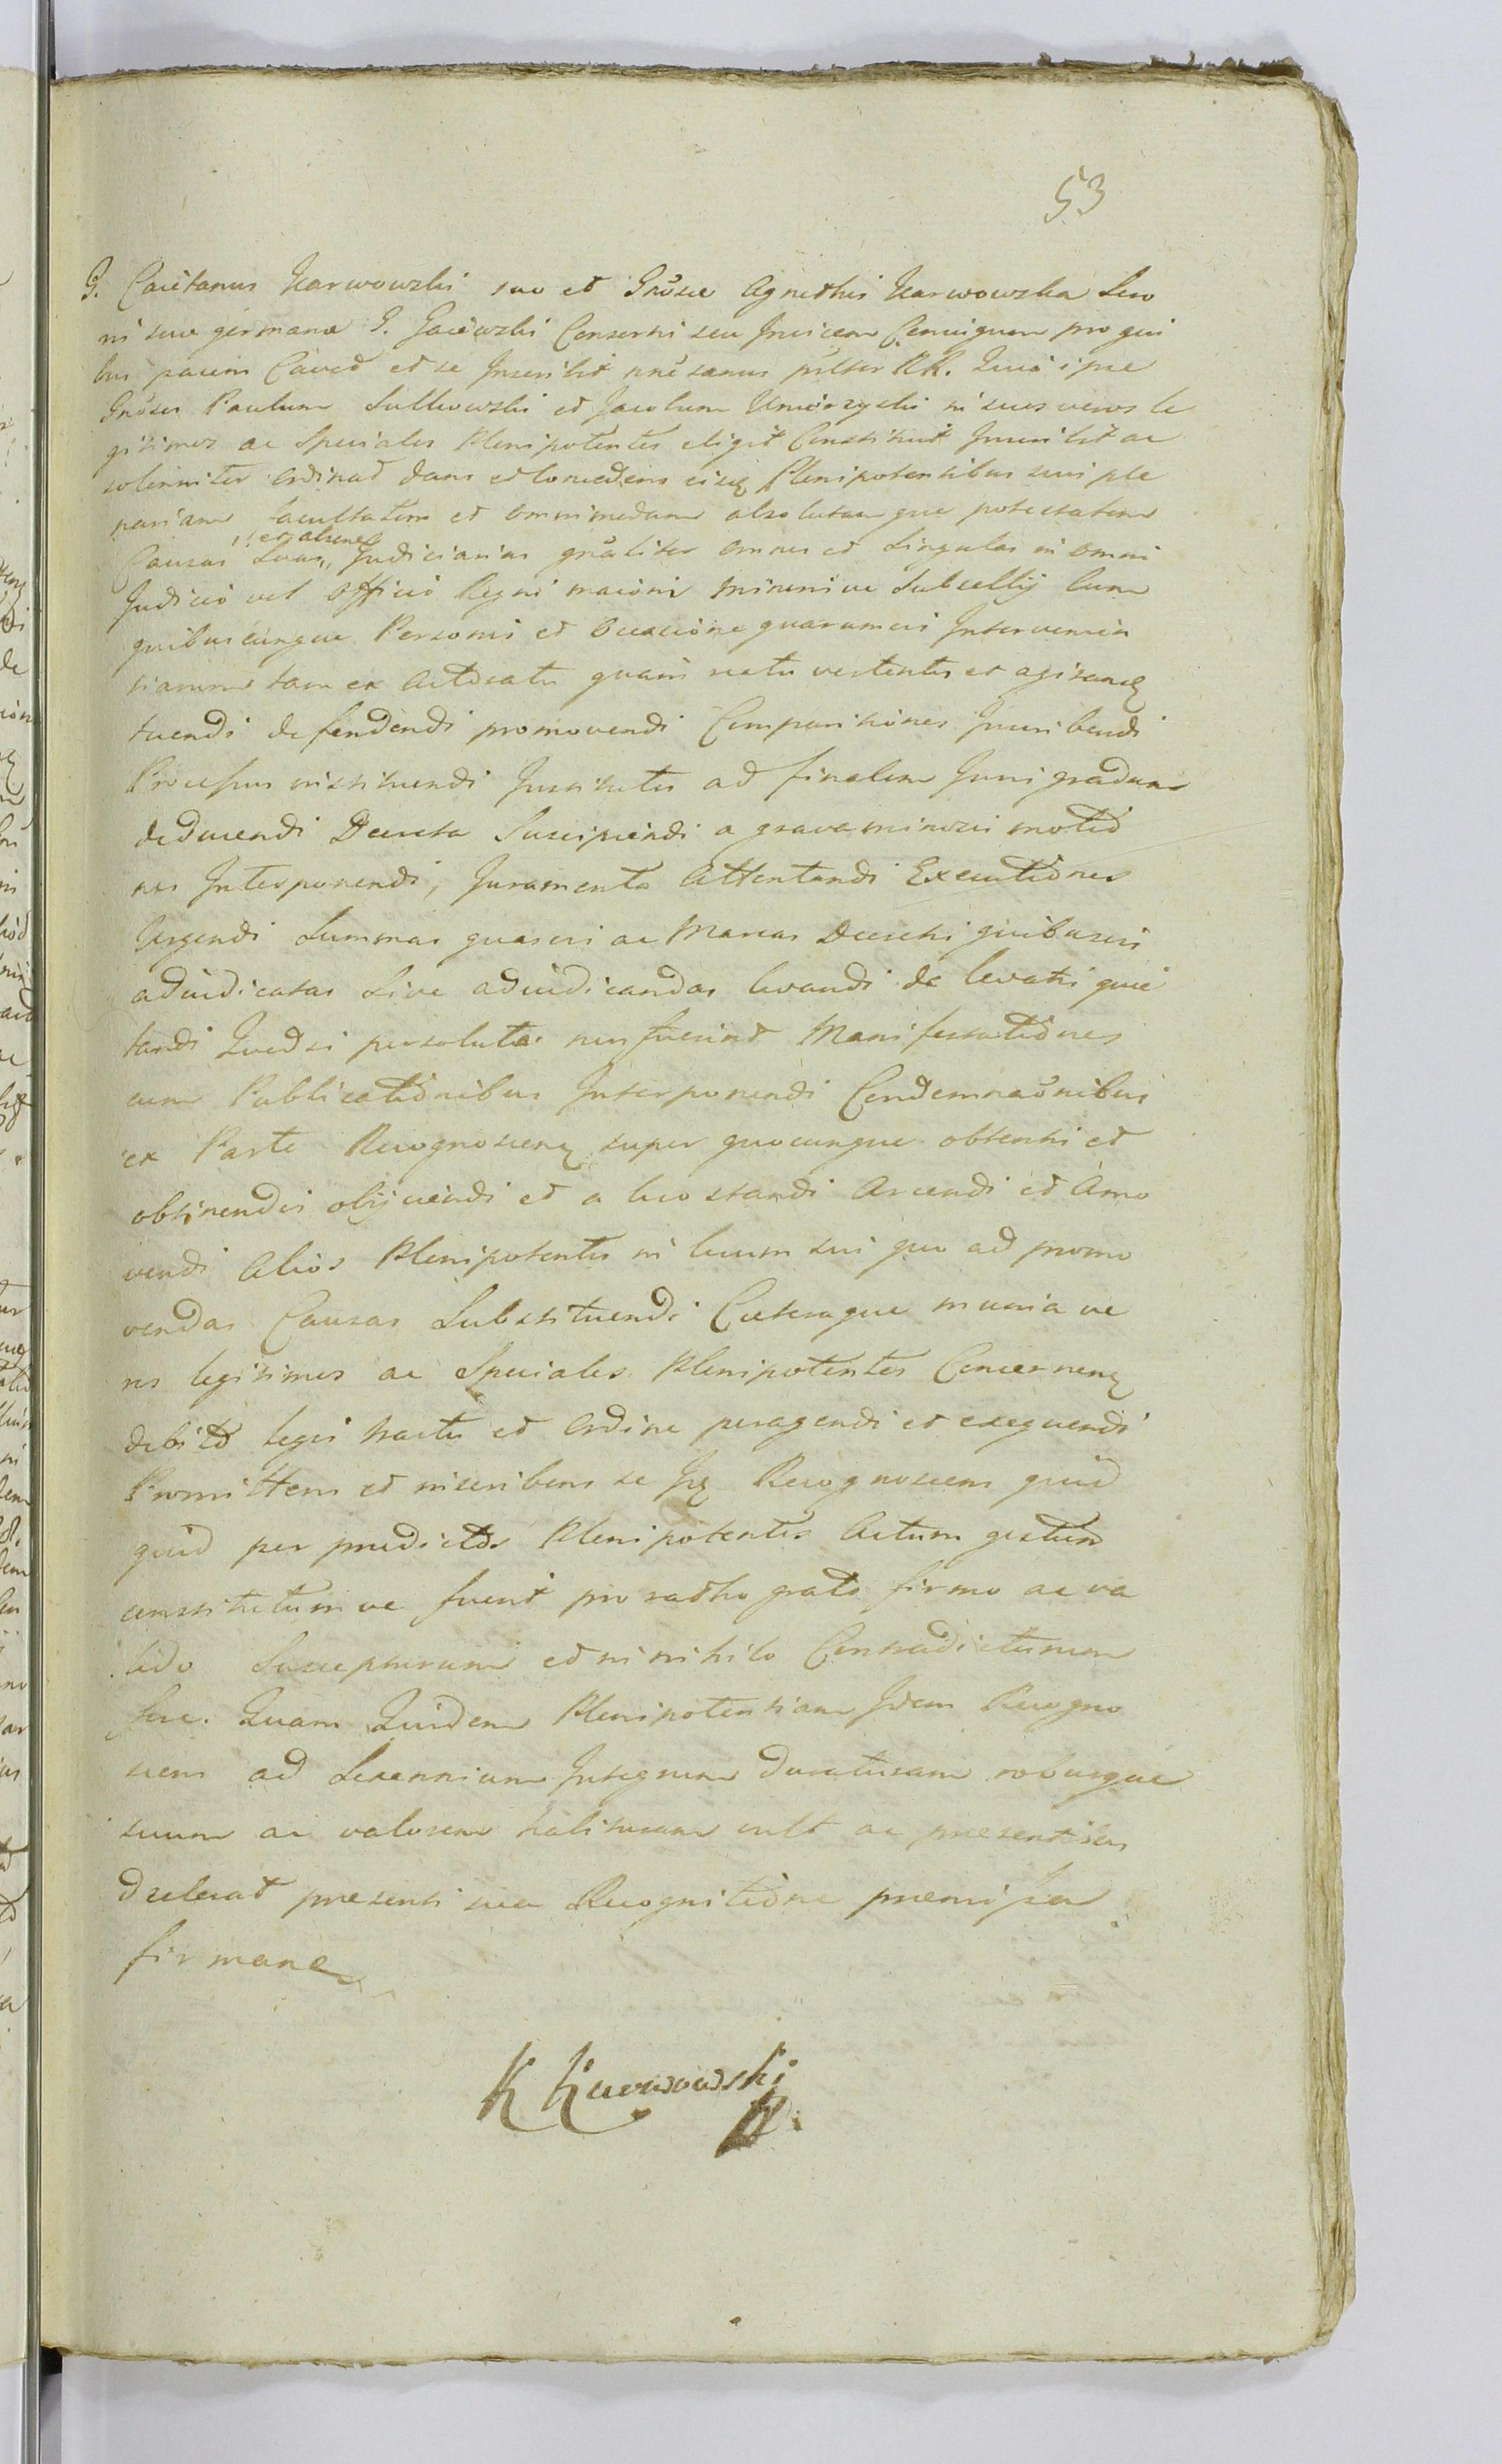 53
G. Caietanus Karwowski suo et Gnõsæ Agnethis Karwowska Soro
ris suæ germanæ G. Gaiewski Consortis seu Invicem Coniugum pro qui
bus pacem Cavet et se Inscribit nrẽ sanus pslter RR. Quiò ipse
Gnõsos Paulum Sutkowski et Jacobum Umiorzyski in suos veros le
gitimos ac Speciales Plenipotentes eligit Constituit Inscribit ac
solenniter ordinat dans et Concedens eisq Plenipotentibus suis ple
nariam facultatem et omnimodam absolutamque potestatem
Causas Suas, Judiciarias gnãliter omnes et Singulas in omni
et absenq
Judicio vel Officio Regni maioris minorisve Subsellij Cum
quibuscunque Personis et Occasione quarumvis Intervenien
tiarum tam ex Actoratu quam reatu vertentes et agitanq
tuendi defendendi promovendi Comparitiones Inscribendi
Processus instituendi Institutos ad finalem Juris gradum
deducendi Decreta Suscipiendi a gravaminosis motio
nes Interponendi, Juramenta Attentandi Executiones
Urgendi Summas quasvis ac Marcas Decretis quibusvis
adiudicatas Sive adiudicandas levandi de levatis quie
tandi Quodsi persolutæ non fuerint Manifestationes
cum Publicationibus Interponendi Condemnaõnibus
ex Parte Recognoscenq super quocunque obtentis et
obtinendis obijciendi et a loco standi Arcendi et Amo
vendi Alios Plenipotentes in locum sui quo ad promo
vendas Causas Substituendi Cæteraque munia ve
ros legitimos ac Speciales Plenipotentes Concernenq
debito legis tractu et ordine peragendi et exequendi
Promittens et inscribens se Iq Recognoscens quid
quid per prædictos Plenipotentes Actum gestum
constitutumve fuerit pro ratho grato firmo ac va
lido Suscepturum et in nihilo Contradicturum
fore. Quam Quidem Plenipotentiam Idem Recogno
scens ad Sexennium Integrum duraturam roburque
suum ac valorem habituram vult ac præsentibus
declarat præsenti sua Recognitione præmissa
firmanq
K Karwowski